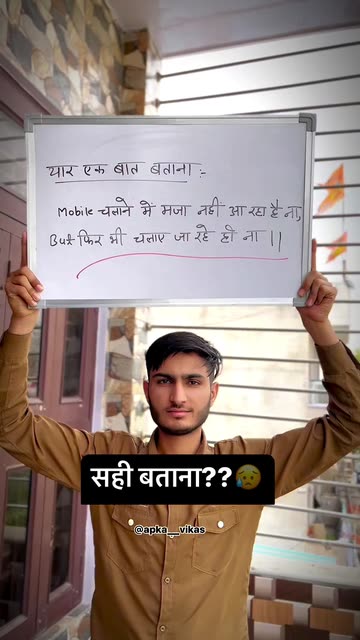 यार एक बात बताना :-
Mobile चलाने में मजा नहीं आ रहा है ना,
But फिर भी चलाए जा रहे हो ना ||
सही बताना??😥
@apka__vikas